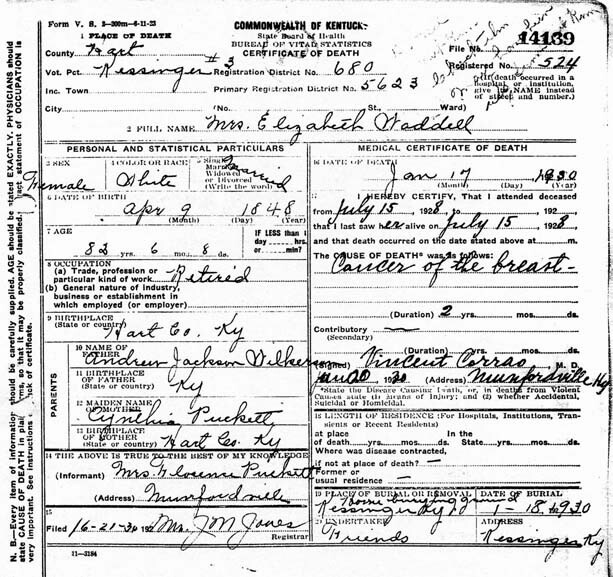 Form V. S. 2-300m-6-11-23
1 PLACE OF DEATH
COMMONWEALTH OF KENTUCKY
State Board of Health
BUREAU OF VITAL STATISTICS
CERTIFICATE OF DEATH
County Hart
File No. 14139
Vot. Pct. Kessinger #3 Registration District No. 680 Registered No. 524
Inc. Town Primary Registration District No. 5623
(If death occurred in a hospital or institution, give its NAME instead of street and number.)
City (No. St., Ward)
2 FULL NAME Mrs. Elizabeth Waddell
PERSONAL AND STATISTICAL PARTICULARS
3 SEX Female
4 COLOR OR RACE White
5 Single Married Widowed or Divorced (Write the word) Married
6 DATE OF BIRTH
Apr 9 1848
(Month) (Day) (Year)
7 AGE
82 yrs. 6 mos. 8 ds.
IF LESS than 1 day hrs. or min.?
8 OCCUPATION
(a) Trade, profession or particular kind of work Retired
(b) General nature of industry, business or establishment in which employed (or employer)
9 BIRTHPLACE
(State or country) Hart Co. Ky
PARENTS
10 NAME OF FATHER Andrew Jackson
11 BIRTHPLACE OF FATHER
(State or country) Ky
12 MAIDEN NAME OF MOTHER Cynthia Puckett
13 BIRTHPLACE OF MOTHER
(State or country) Hart Co. Ky
14 THE ABOVE IS TRUE TO THE BEST OF MY KNOWLEDGE
(Informant) Mrs Florence Puckett
(Address) Munfordville
15
Filed 192 Mrs. J M Jones
Registrar
11-3184
MEDICAL CERTIFICATE OF DEATH
16 DATE OF DEATH
Jan 17 1930
(Month) (Day) (Year)
17 I HEREBY CERTIFY, That I attended deceased
from July 15, 1928, to 192
that I last saw her alive on July 15, 1928,
and that death occurred on the date stated above at m.
The CAUSE OF DEATH* was as follows:
Cancer of the breast-
(Duration) 2 yrs. mos. ds.
Contributory —
(Secondary)
(Duration) yrs. mos. ds.
(Signed) Vincent Corrao M. D.
Jan 20 1930 (Address) Munfordville Ky
*State the Disease Causing Death, or, in deaths from Violent Causes state (1) Means of Injury; and (2) whether Accidental, Suicidal or Homicidal.
18 LENGTH OF RESIDENCE (For Hospitals, Institutions, Transients or Recent Residents)
At place of death yrs. mos. ds. In the State yrs. mos. ds.
Where was disease contracted,
if not at place of death? —
Former or usual residence —
19 PLACE OF BURIAL OR REMOVAL
Home burying ground
Kessinger Ky
DATE OF BURIAL
1-18 1930
20 UNDERTAKER
Friends
ADDRESS
Kessinger, Ky
N. B.—Every item of information should be carefully supplied. AGE should be stated EXACTLY. PHYSICIANS should
state CAUSE OF DEATH in plain terms, so that it may be properly classified. Exact statement of OCCUPATION is
very important. See instructions on back of certificate.